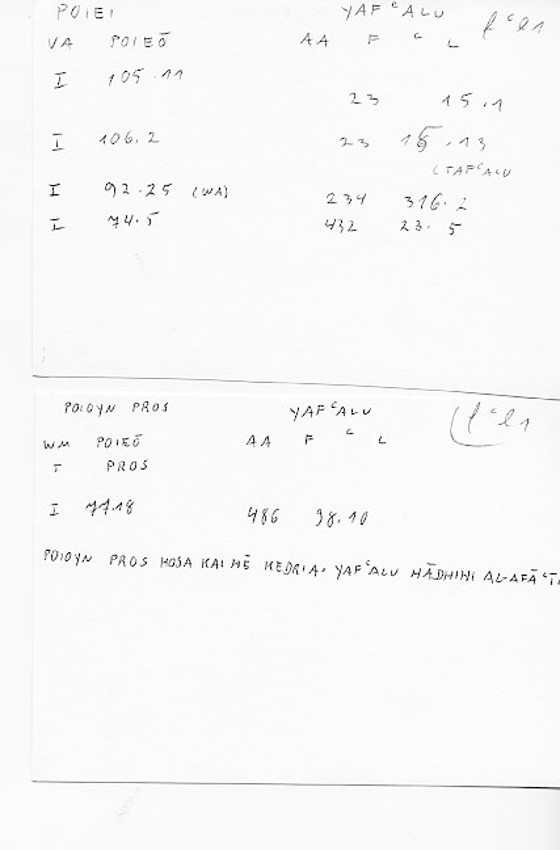 POIEI YAFᶜALU fᶜl1
VA POIEŌ AA F ᶜ L
I 105.11
23 15.1
I 106.2 23 15.13
(TAFᶜALU
I 92.25 (WA) 234 316.2
I 74.5 432 23.5
POIOYN PROS YAFᶜALU fᶜl1
WM POIEŌ AA F ᶜ L
T PROS
I 77.18 486 38.10
POIOYN PROS HOSA KAI HĒ KEDRIA. YAFᶜALU HĀDHIHI AL-AFĀᶜ